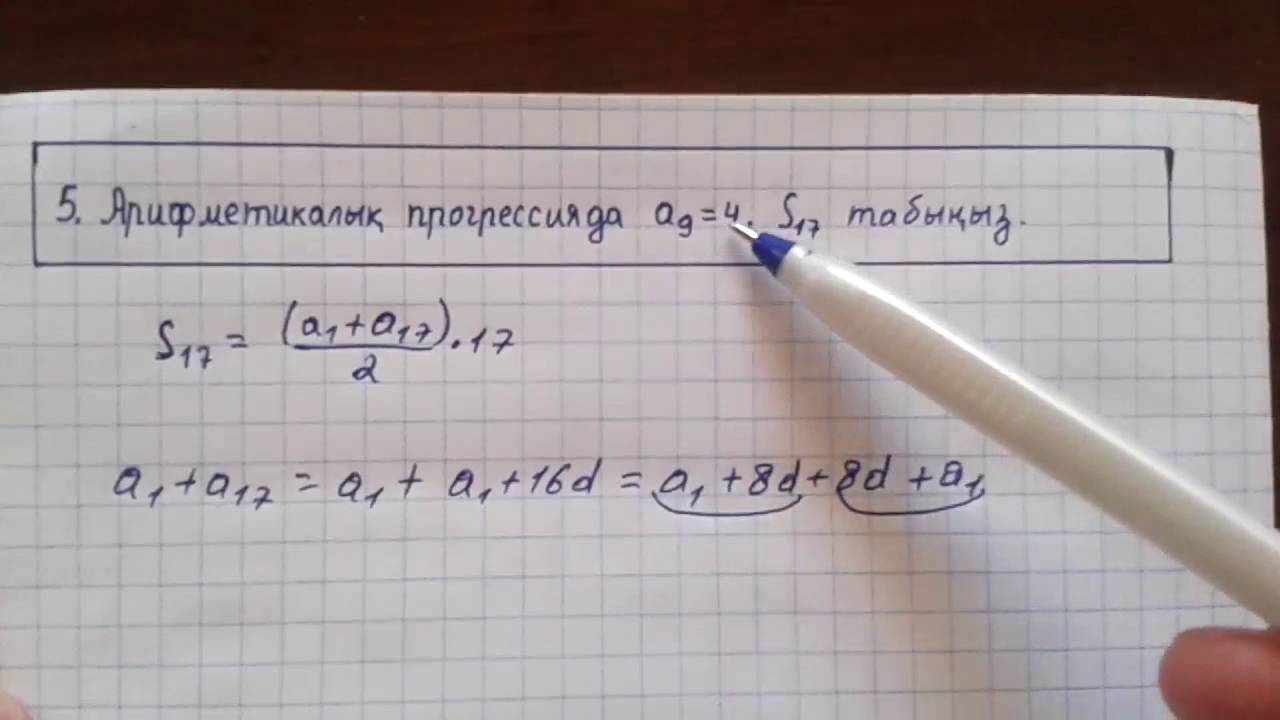 5. Арифметикалық прогрессияда a₉=4. S₁₇ табыңыз.
S₁₇ = (a₁+a₁₇)/2 · 17
a₁+a₁₇ = a₁+ a₁+16d = a₁+8d+8d +a₁